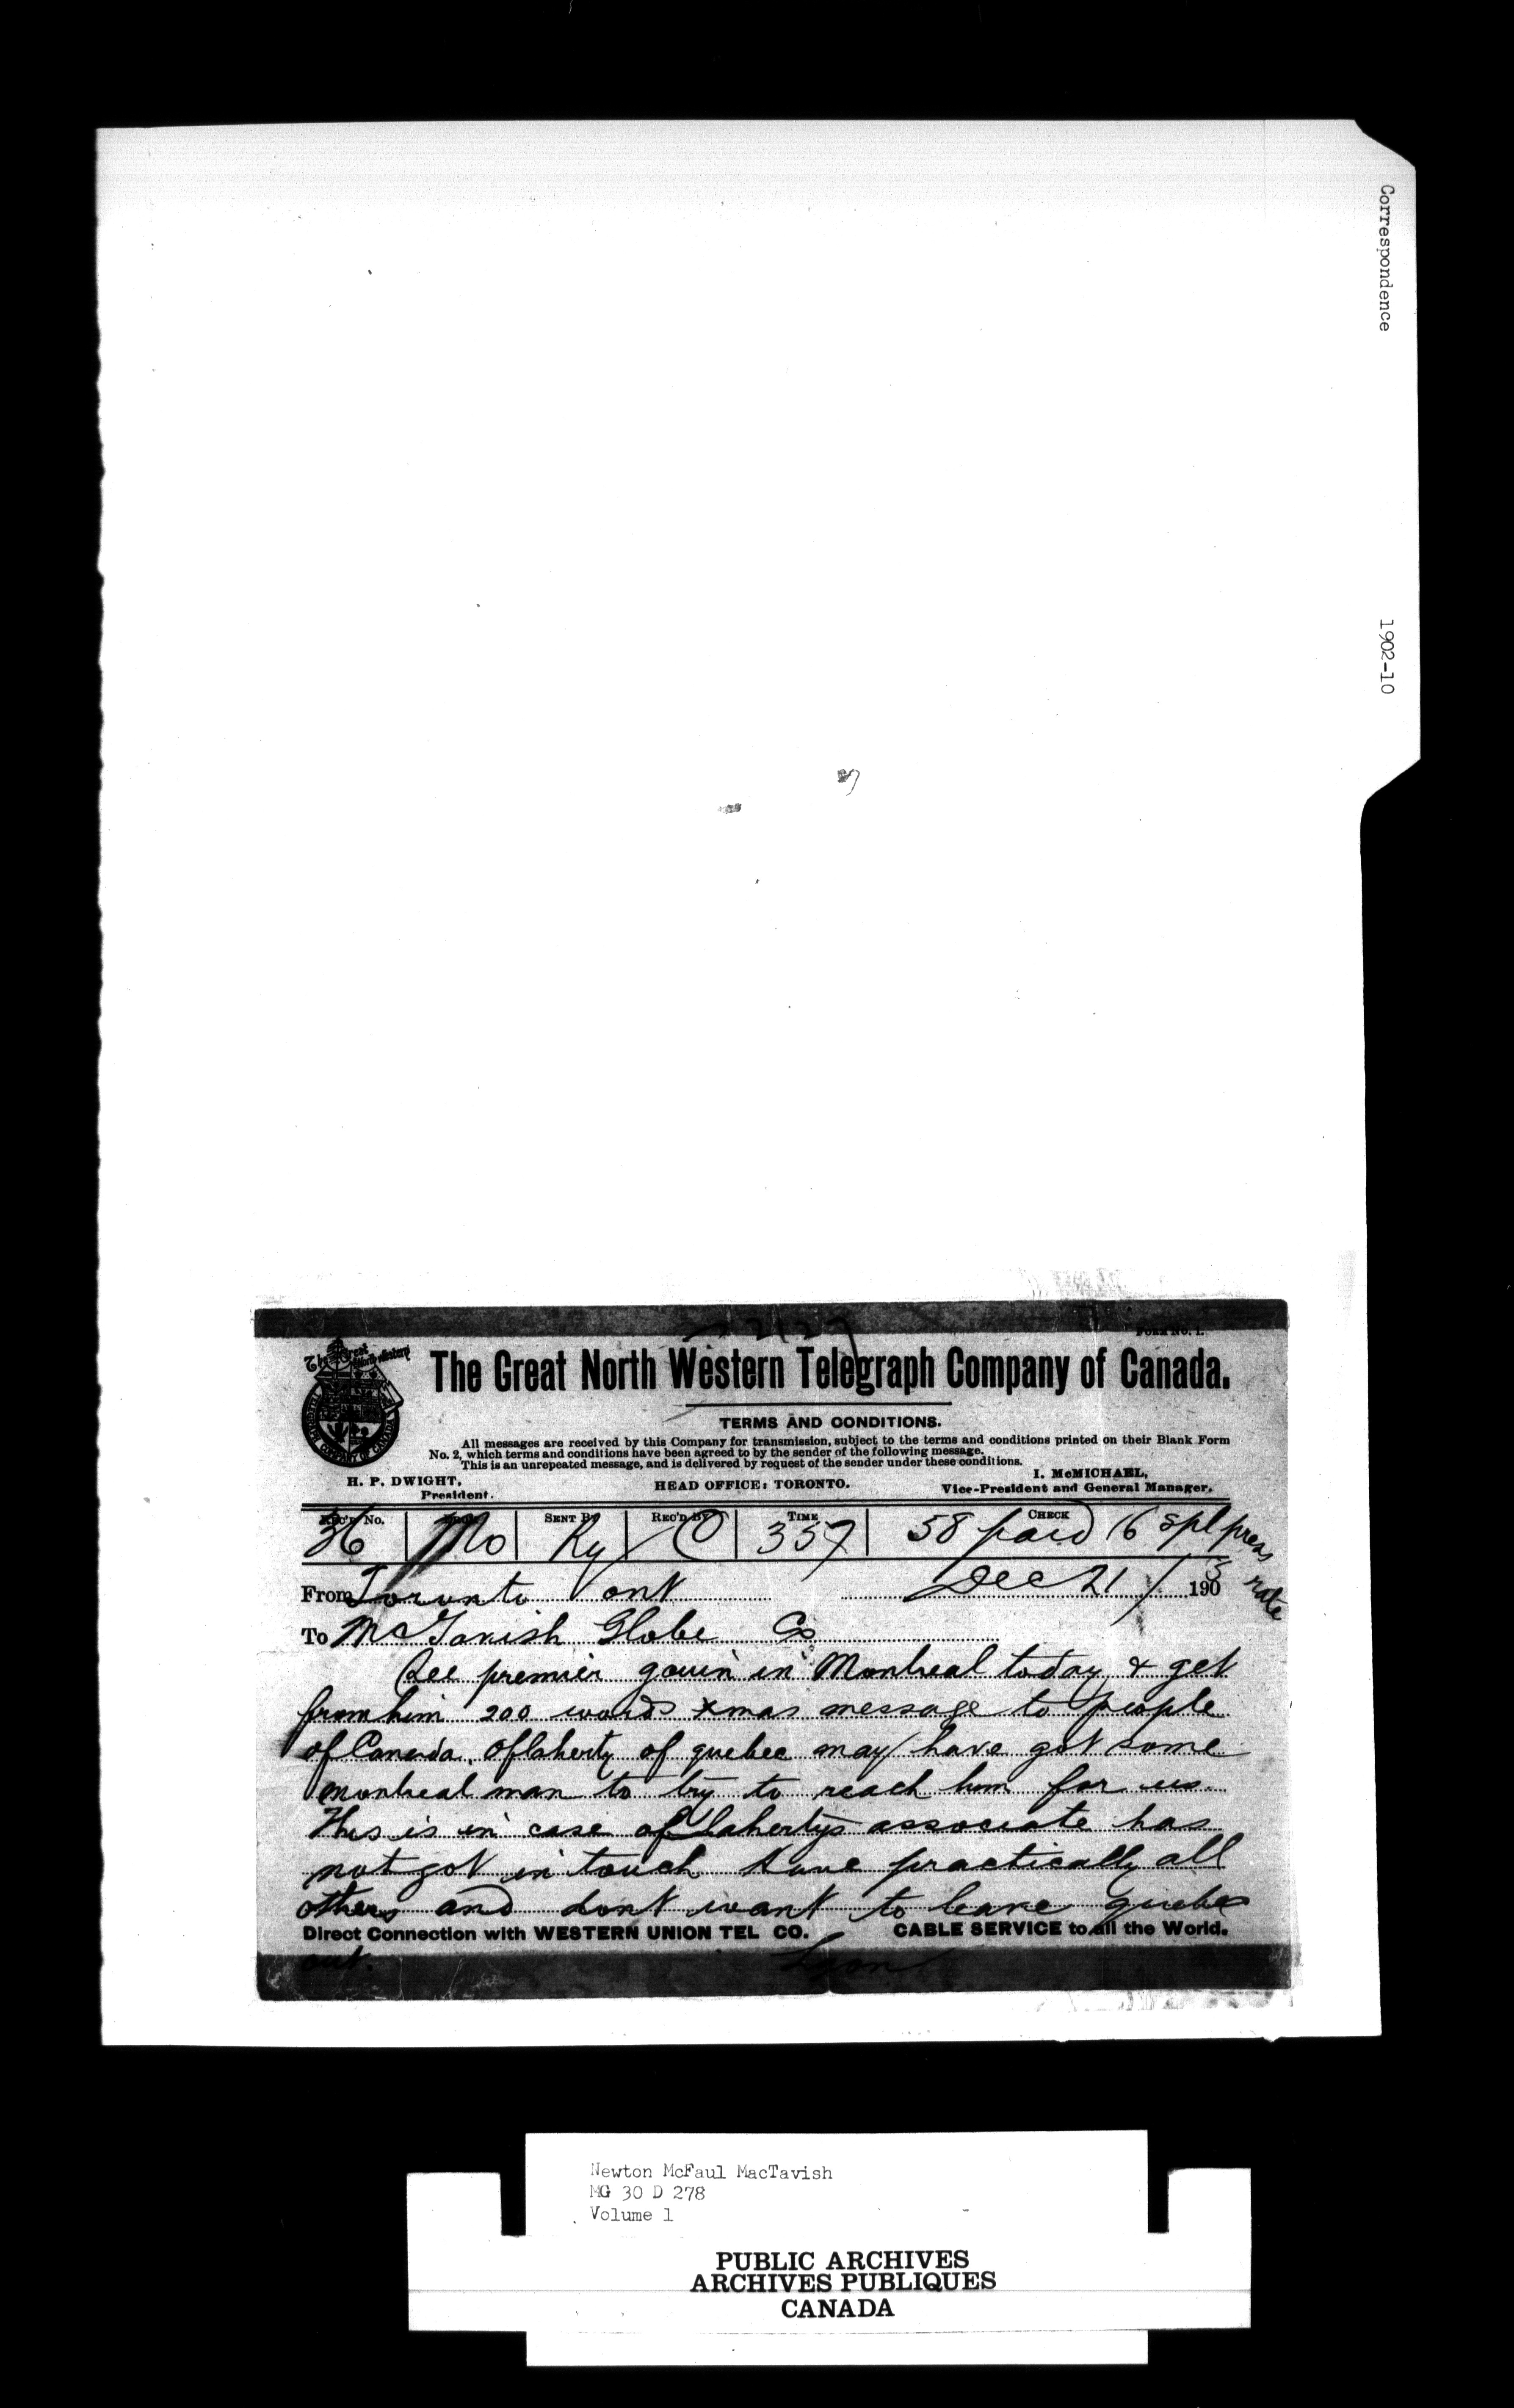 Correspondence
1902-10
FORM No. 1.
The Great North Western Telegraph Company of Canada.
TERMS AND CONDITIONS.
All messages are received by this Company for transmission, subject to the terms and conditions printed on their Blank Form
No. 2, which terms and conditions have been agreed to by the sender of the following message.
This is an unrepeated message, and is delivered by request of the sender under these conditions.
H. P. DWIGHT, President.
HEAD OFFICE: TORONTO.
I. McMICHAEL, Vice-President and General Manager.
REC'D No. SENT BY REC'D BY TIME CHECK
36 Mo Ry C 357 58 paid 16 spl press rate
From Toronto ont Dec 21 / 1903
To McTavish Globe Co
See premier gouin in Montreal today & get
from him 200 words xmas message to people
of Canada. Oflaherty of quebec may have got some
montreal man to try to reach him for us.
This is in case oflahertys associate has
not got in touch have practically all
others and dont want to leave quebec
Direct Connection with WESTERN UNION TEL CO. CABLE SERVICE to all the World.
out. Lyon
Newton McFaul MacTavish
MG 30 D 278
Volume 1
PUBLIC ARCHIVES
ARCHIVES PUBLIQUES
CANADA